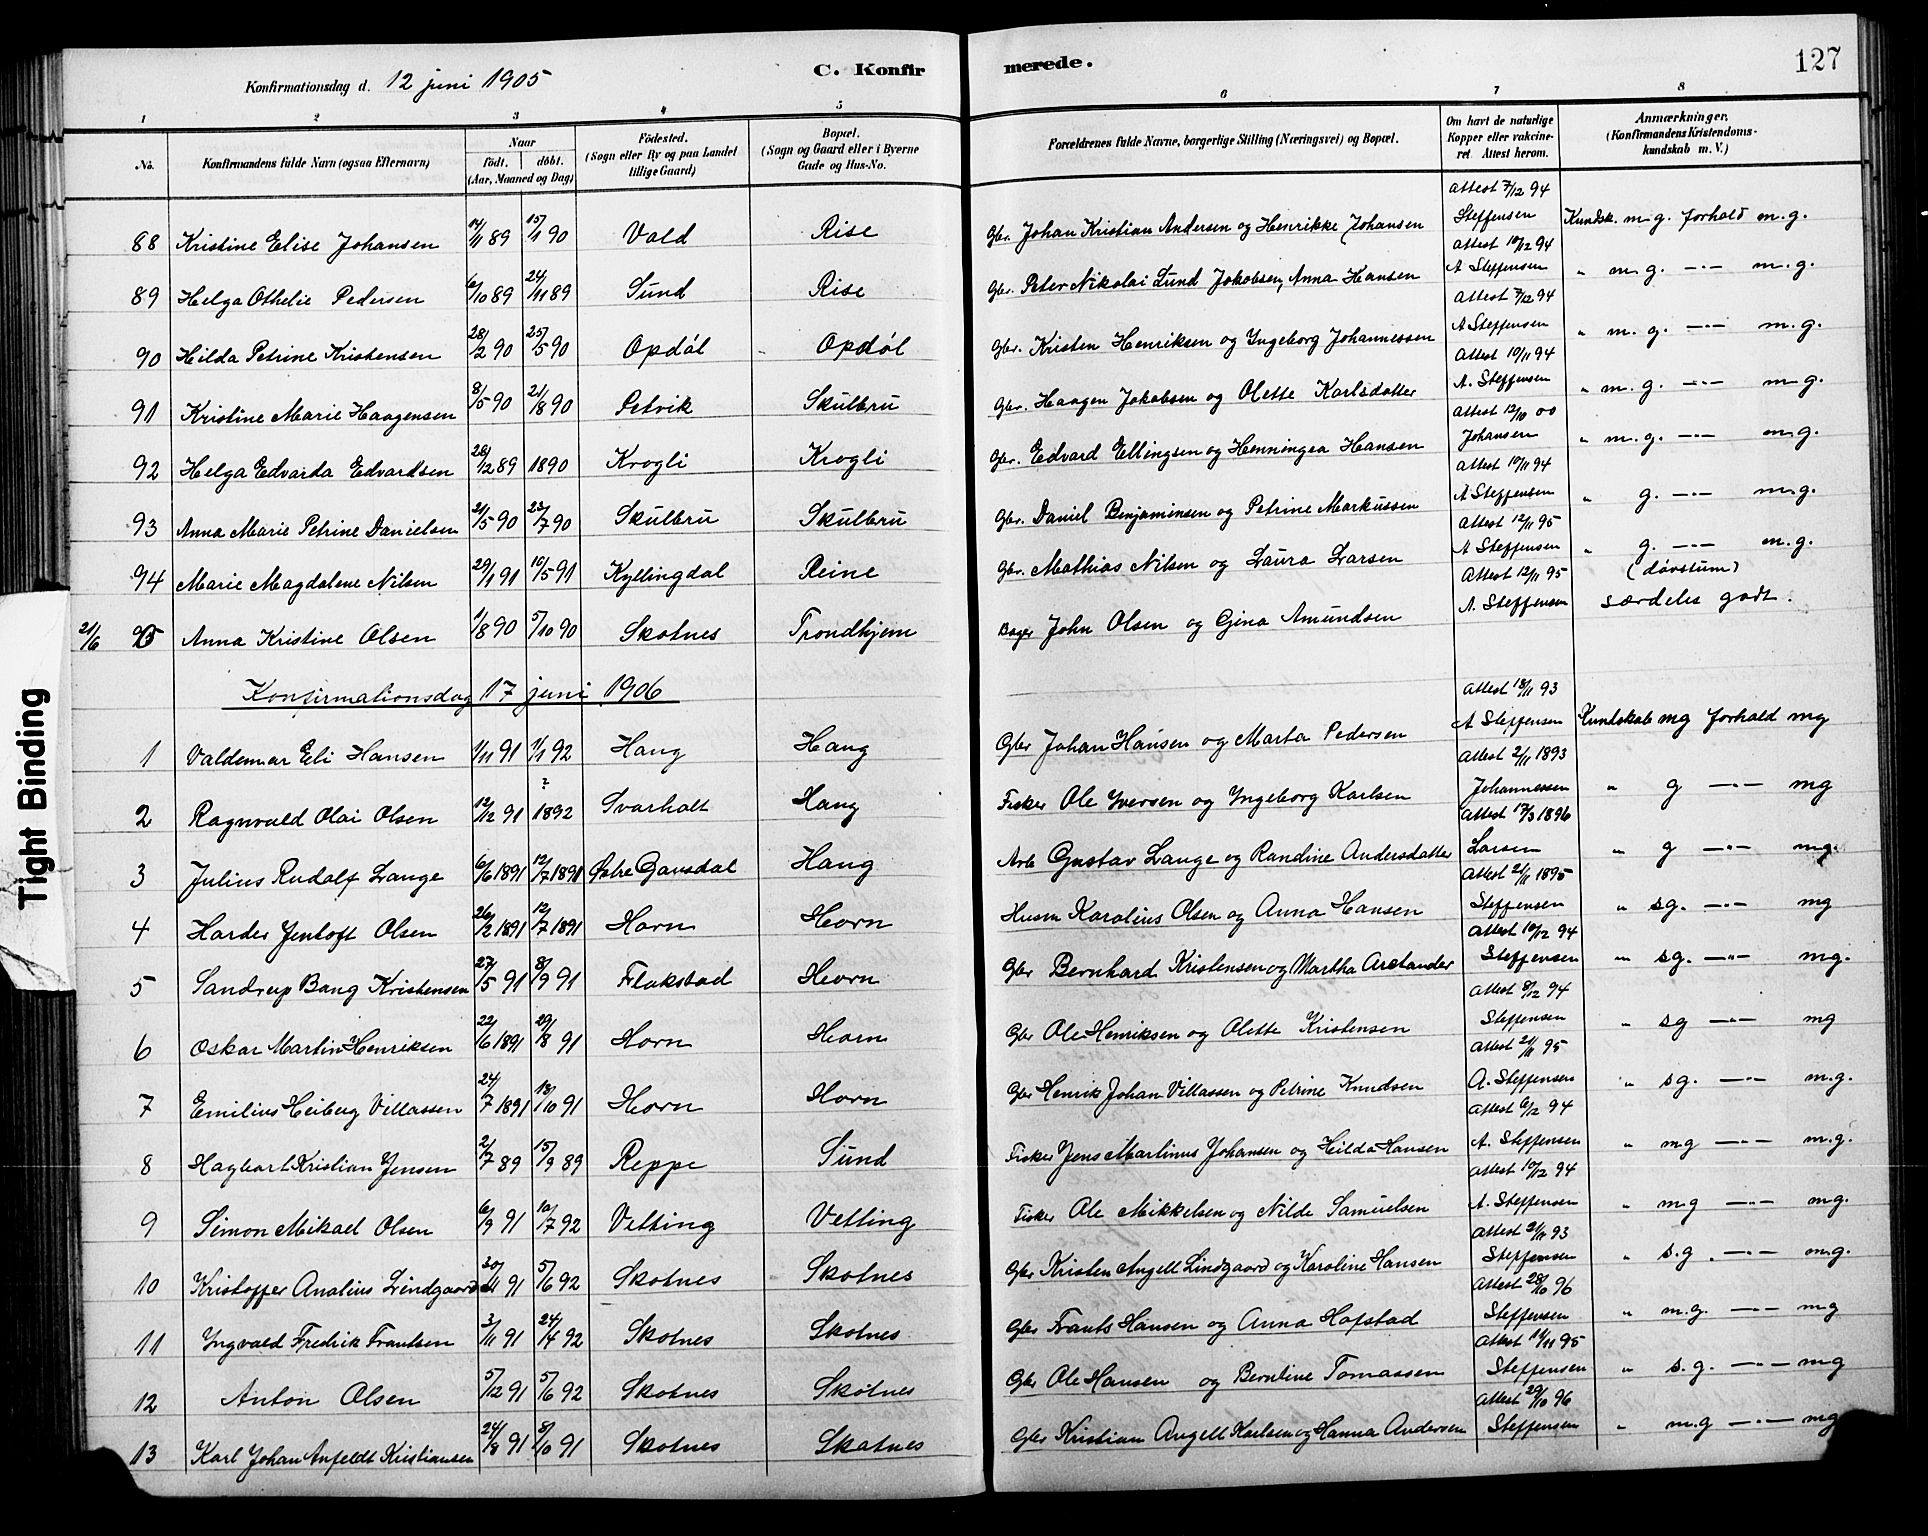 127
Konfirmationsdag d. 12 juni 1905 C. Konfir merede.
1 2 3 4 5 6 7 8
No. Konfirmandens fulde Navn (ogsaa Efternavn) Naar födt. döbt. (Aar, Maaned og Dag) Födested. (Sogn eller By og paa Landet tillige Gaard) Bopæl. (Sogn og Gaard eller i Byerne Gade og Hus-No. Forældrenes fulde Navne, borgerlige Stilling (Næringsvei) og Bopæl. Om havt de naturlige Kopper eller vakcineret. Attest herom. Anmærkninger. (Konfirmandens Kristendomskundskab m. V.)
88 Kristine Elise Johansen 14/11 89 15/1 90 Vold Rise Gbr. Johan Kristian Andersen og Henrikke Johansen Attest 7/12 94 Steffensen Kundsk. m.g. forhold m.g.
89 Helga Othelie Pedersen 6/10 89 24/11 89 Sund Rise Gbr. Peter Nikolai Lund Jakobsen, Anna Hansen Attest 10/12 94 A Steffensen " m.g. -"- m.g.
90 Hilda Petrine Kristensen 28/2 90 25/5 90 Opdöl Opdöl Gbr. Kristen Henriksen og Yngeborg Johannessen Attest 7/12 94 A Steffensen " m.g. -"- m.g.
91 Kristine Marie Haagensen 8/5 90 21/8 90 Petvik Skulbru Gbr. Haagen Jakobsen og Olette Karlsdatter Attest 10/11 94 A. Steffensen " m.g. -"- m.g.
92 Helga Edvarda Edvardsen 28/12 89 1890 Krogli Krogli Gbr. Edvard Ellingsen og Henningea Hansen Attest 12/10 00 Johansen " m.g. -"- m.g.
93 Anna Marie Petrine Danielsen 21/5 90 23/7 90 Skulbru Skulbru Gbr. Daniel Benjaminsen og Petrine Markussen Attest 10/11 94 A Steffensen " g. -"- m.g.
94 Marie Magdalene Nilsen 29/1 91 10/5 91 Kyllingdal Reine Gbr. Mathias Nilsen og Laura Larsen Attest 12/11 95 A Steffensen " g. -"- m.g. (døvstum)
21/6 95 Anna Kristine Olsen 1/8 90 5/10 90 Skotnes Trondhjem Bager John Olsen og Gina Amundsen Attest 12/11 95 A. Steffensen særdeles godt.
Konfirmationsdag 17 juni 1906
1 Valdemar Eli Hansen 1/11 91 1/1 92 Haug Haug Gbr Johan Hansen og Marta Pedersen Attest 18/11 93 A Steffensen Kundskab mg forhold mg
2 Ragnvald Olai Olsen 12/12 91 ? 1892 Svarholt Haug Fisker Ole Yversen og Yngeborg Karlsen Attest 2/11 1893 Johannessen " g -"- mg
3 Julius Rudolf Lange 6/6 1891 12/7 1891 Østre Gausdal Haug Arb Gustav Lange og Randine Andersdatter Attest 17/3 1896 Larsen " g -"- mg.
4 Harder Jentoft Olsen 26/2 1891 12/7 1891 Horn Horn Husm Karolius Olsen og Anna Hansen Attest 21/11 1895 Steffensen " sg. -"- mg
5 Sandrup Bang Kristensen 27/5 91 8/9 91 Flakstad Horn Gbr Bernhard Kristensen og Martha Arctander Attest 10/12 94 Steffensen " sg. -"- mg.
6 Oskar Martin Henriksen 22/6 1891 20/8 91 Horn Horn Gbr Ole Henriksen og Olette Kristensen Attest 8/12 94 Steffensen " sg -"- mg
7 Emilius Heiberg Villassen 24/7 1891 18/10 91 Horn Horn Gbr Henrik Johan Villassen og Petrine Knudsen Attest 21/11 95 A. Steffensen " sg. -"- m.g.
8 Hagbart Kristian Jensen 2/7 89 15/9 89 Reppe Sund Fisker Jens Martinus Johansen og Hilda Hansen Attest 6/12 94 A. Steffensen " mg -"- m.g.
9 Simon Mikael Olsen 6/9 91 10/7 92 Vetting Vetting Fisker Ole Mikkelsen og Nilde Samuelsen Attest 10/12 94 A. Steffensen " mg -"- mg.
10 Kristoffer Analius Lindgaard 30/11 91 5/6 92 Skotnes Skotnes Gbr Kristen Angell Lindgaard og Karoline Hansen Attest 21/11 93 Steffensen " s.g. -"- m.g.
11 Yngvald Fredrik Frantsen 3/11 91 24/4 92 Skotnes Skotnes Gbr Frants Hansen og Anna Hofstad Attest 28/10 96 Steffensen " m.g. -"- mg
12 Anton Olsen 5/12 91 5/6 92 Skotnes Skotnes Gbr Ole Hansen og Berntine Tomassen Attest 14/11 95 Steffensen " s.g. -"- mg
13 Karl Johan Anfeldt Kristiansen 24/8 91 8/10 91 Skotnes Skotnes Gbr Kristian Angell Karlsen og Hanna Andersen Attest 29/10 96 Steffensen " m.g -"- mg
Tight Binding